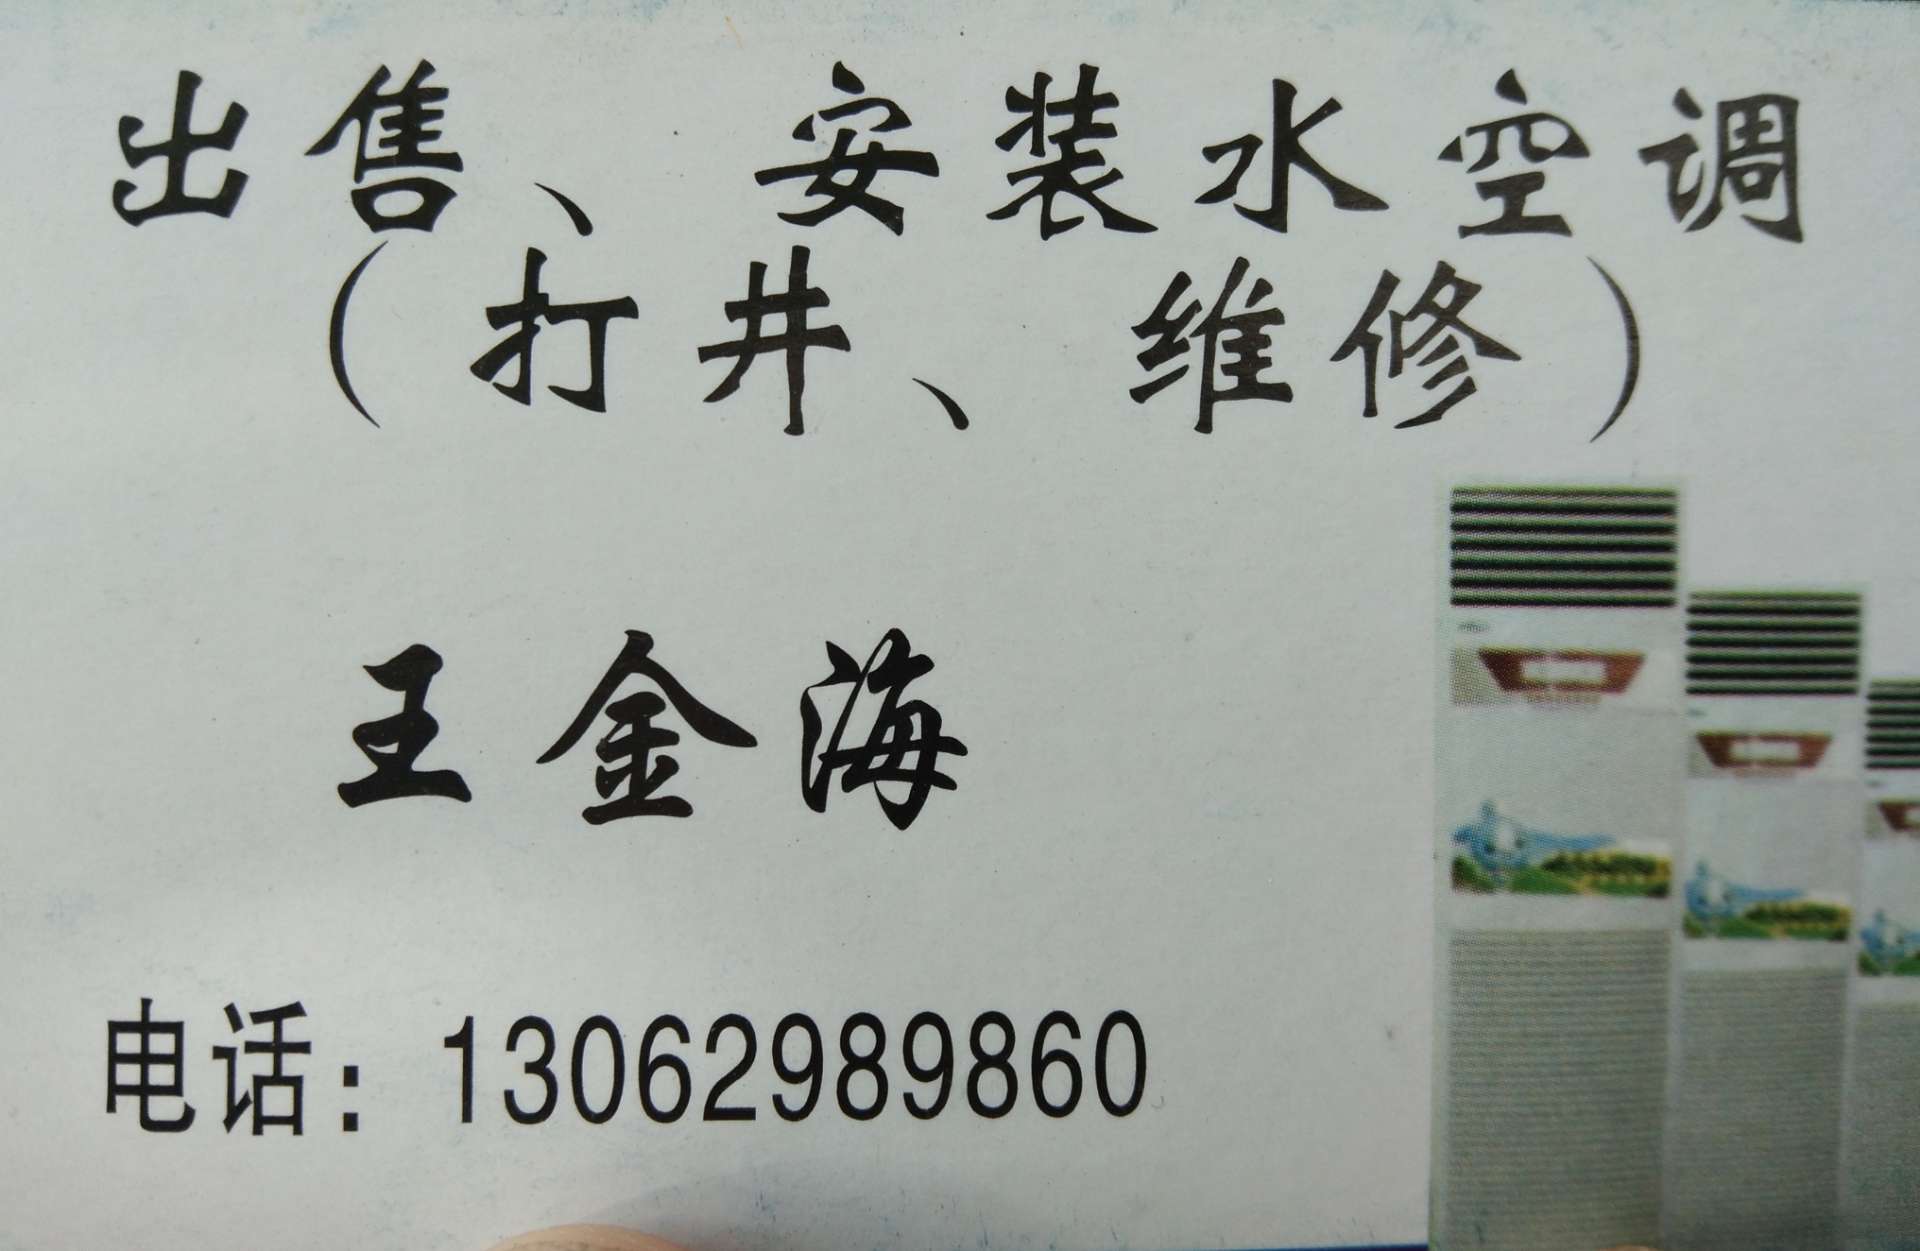 出售、安装水空调
（打井、维修）
王金海
电话：13062989860